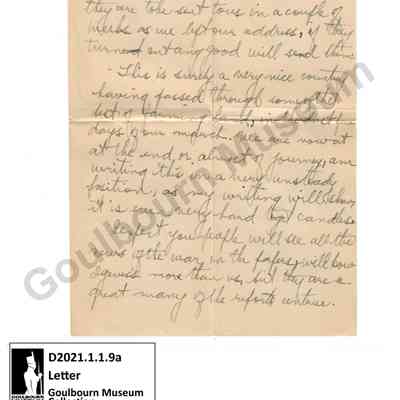 they are to be sent to us in a couple of
weeks as we left our address, if they
turned out any good will send them
- This is surely a very nice country
having passed through some of the
best of farming lands, in
days of our march. We are now at
at the end, or, almost of journey, am
writing this on a very unsteady
position, as my writing will show,
it is very hard by candle
I expect you people will see all the
news of the war, in the papers, will know
I guess more than us, but they are a
great many of the reports untrue.
Goulbourn Museum
D2021.1.1.9a
Letter
Goulbourn Museum
Collection
GOULBOURN